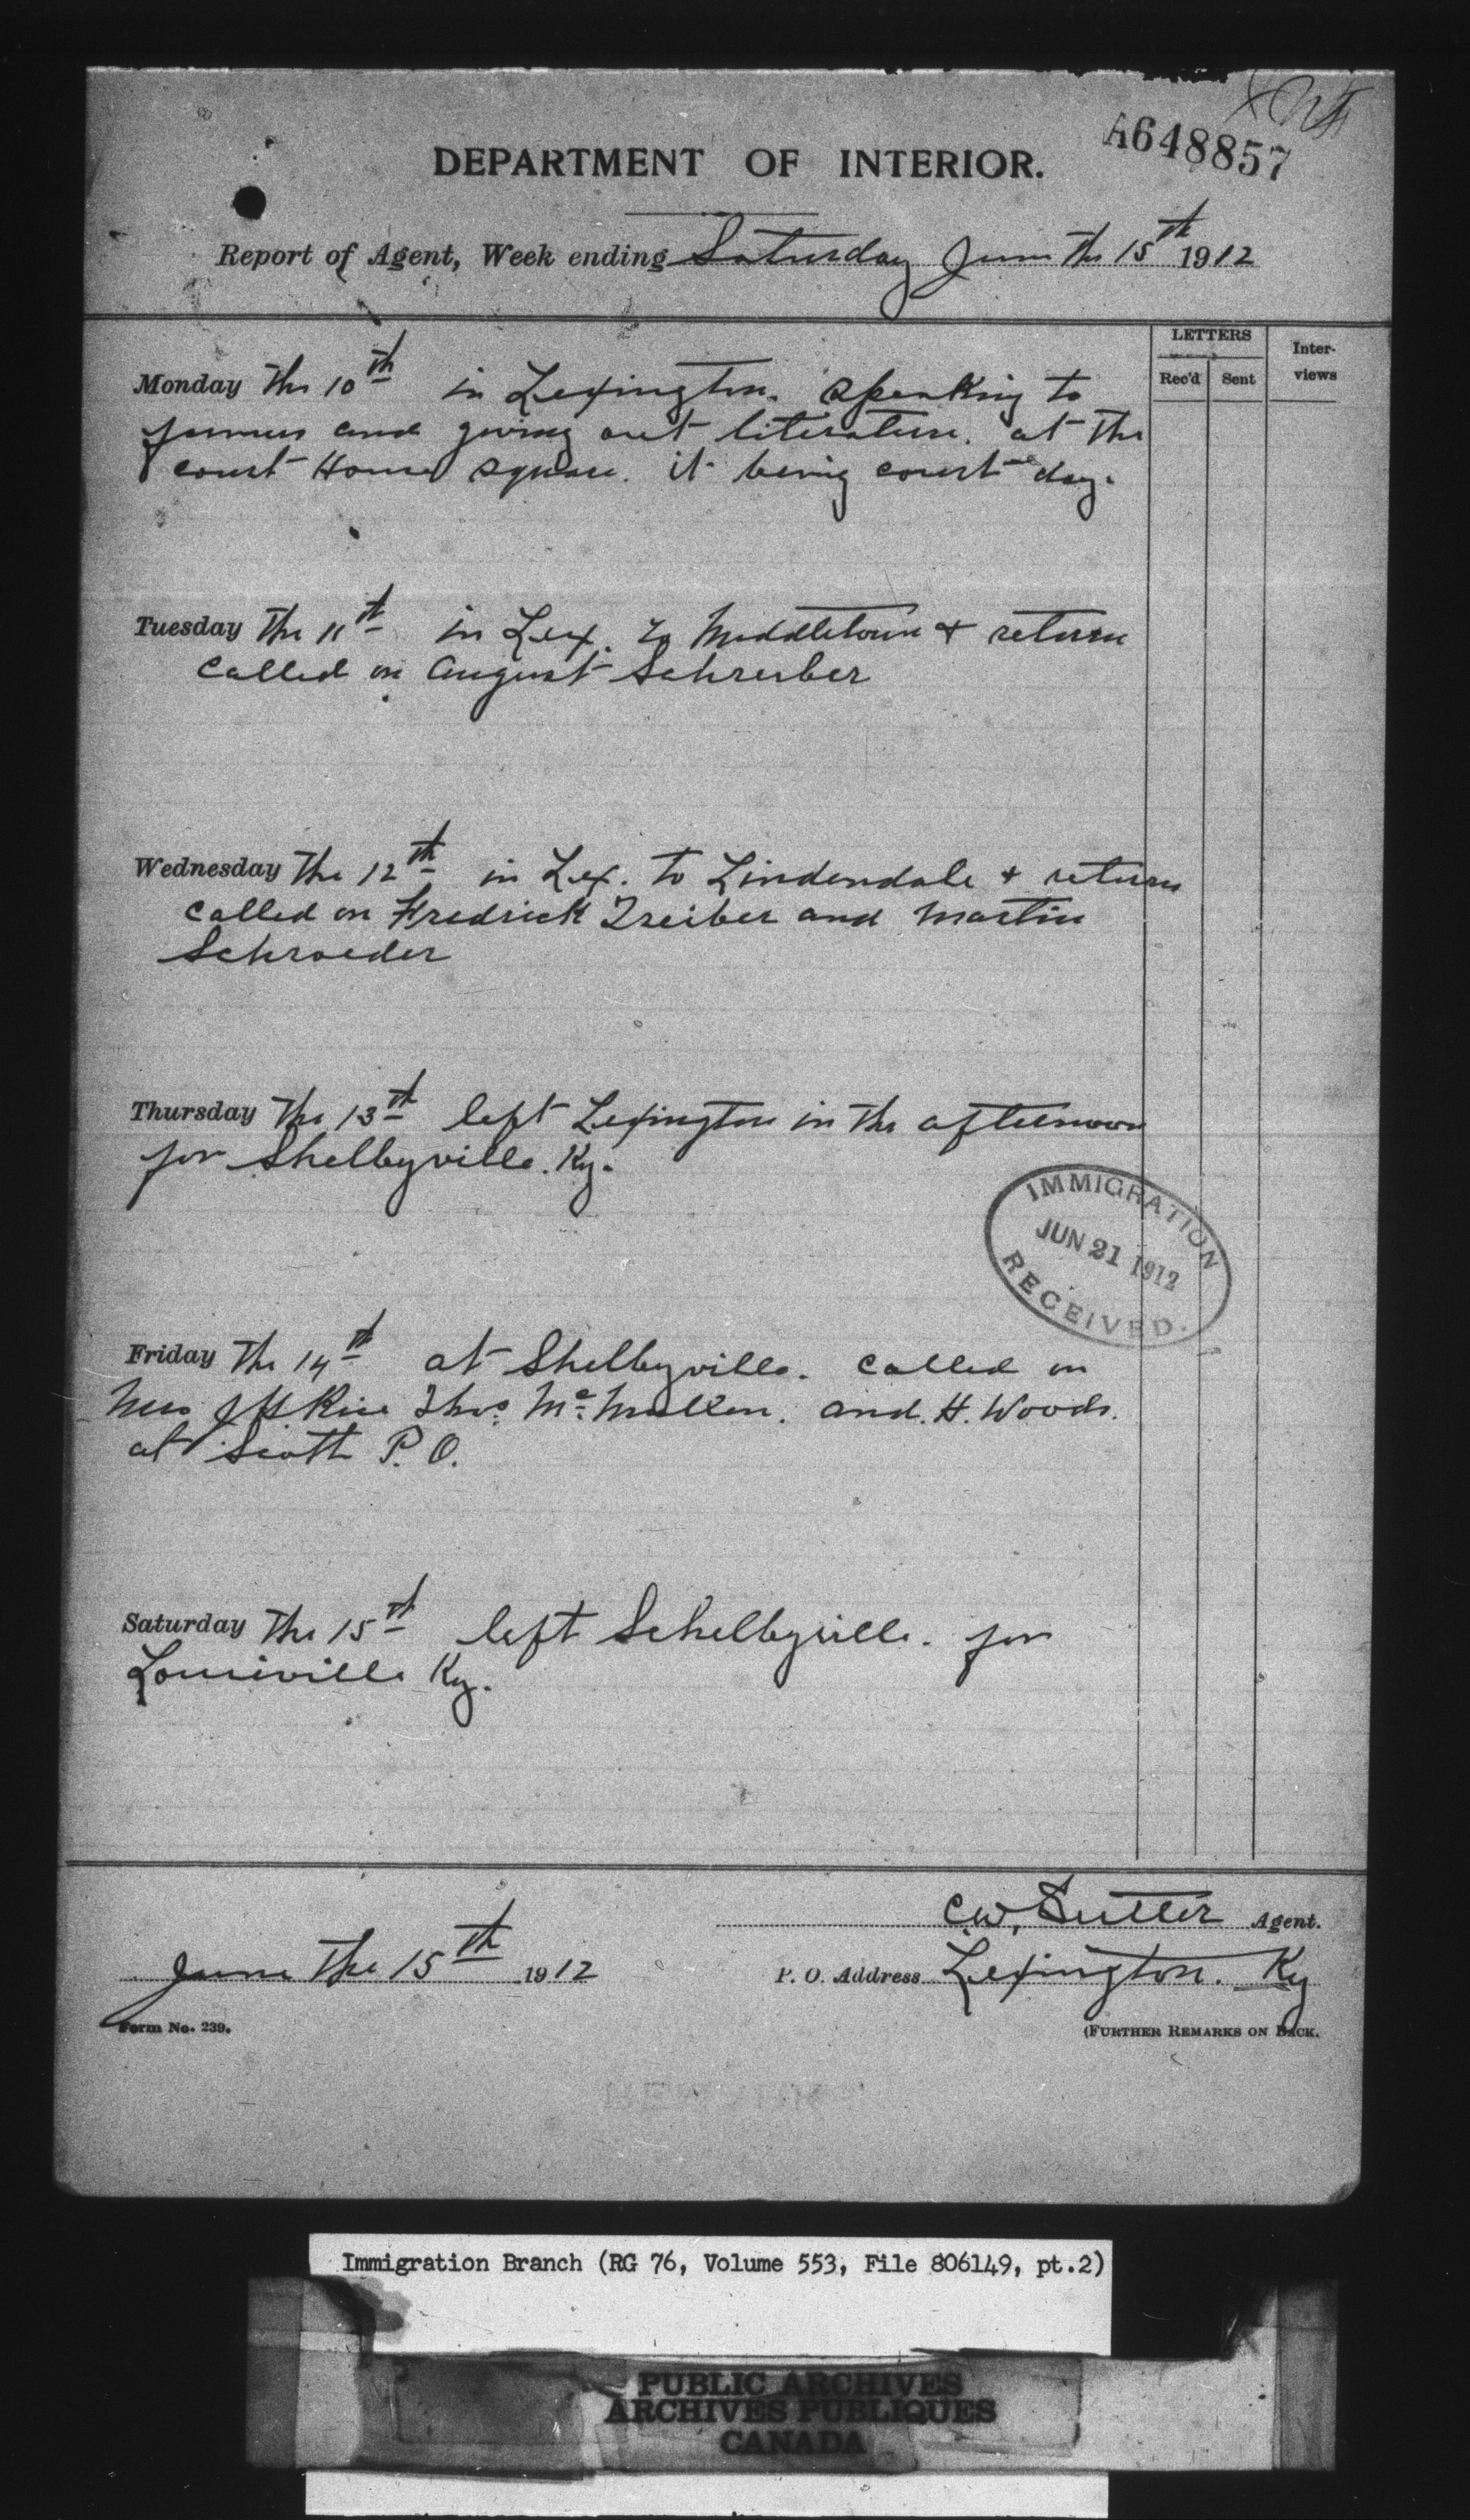 A648857
DEPARTMENT OF INTERIOR.
Report of Agent, Week ending Saturday June The 15th 1912
LETTERS
Rec'd Sent
Inter-
views
Monday The 10th in Lexington. Speaking to
farmers and giving out literature. at The
court House square. it being court day.
Tuesday The 11th in Lex. To Middletown & return
called on August Schreiber
Wednesday The 12th in Lex. To Lindendale & return
called on Fredrick Treiber and Martin
Schroeder
Thursday The 13th left Lexington in The afternoon
for Shelbyville. Ky.
IMMIGRATION
JUN 21 1912
RECEIVED.
Friday The 14th at Shelbyville. called on
Rice Thos. Mc. Mullen. and. H. Woods.
at Scott P. O.
Saturday The 15th left Schelbyville. for
Louiville Ky.
C.W. Sutter Agent.
June The 15th 1912
P. O. Address Lexington. Ky
Form No. 239.
(FURTHER REMARKS ON BACK.
Immigration Branch (RG 76, Volume 553, File 806149, pt.2)
PUBLIC ARCHIVES
ARCHIVES PUBLIQUES
CANADA